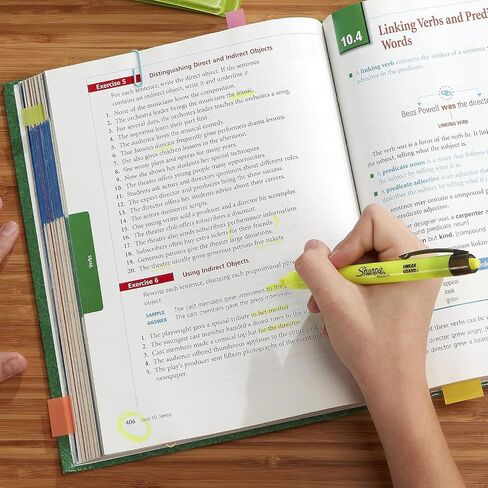 Exercise 5 Distinguishing Direct and Indirect Objects
For each sentence, write the direct object. If the sentence
contains an indirect object, write it and underline it.
1. None of the musicians know the composition.
2. The orchestra leader brings the musicians the music.
3. For several days, the orchestra leader teaches the orchestra a song.
4. The sopranos learn their part first.
5. The audience loves the musical comedy.
6. That famous director frequently gives performers drama lessons.
7. She also gives children lessons in the afternoon.
8. She wrote plays and operas for many years.
9. Now she shows her students her special techniques.
10. The theater offers young people many opportunities.
11. Students ask actors and directors questions about different roles.
12. The expert director and producers bring the show success.
13. The director offers her students advice about their careers.
14. The actors memorize scripts.
15. One young writer sold a producer and a director his screenplay.
16. The theater club offers subscribers a discount.
17. The theater also sends subscribers performance information.
18. Subscribers often buy extra tickets for their friends.
19. Generous patrons give the theater large donations.
20. The theater usually gives generous patrons free tickets.
Exercise 6 Using Indirect Objects
Rewrite each sentence, changing each prepositional phrase
SAMPLE The cast members gave interviews to the
ANSWER The cast members gave the press interviews.
1. The playwright gave a special tribute to her mother
2. The youngest cast member handed a dozen roses to the
3. Cast members made a comical top hat for the director.
4. The audience offered thunderous applause to the
5. The play's producers sent fifteen photographs of the event to
newspaper.
406 Unit 10 Verbs
Verbs
10.4 Linking Verbs and Predi
Words
A linking verb connects the subject of a sentence
adjective in the predicate.
Bess Powell was the direct
LINKING VERB
The verb was is a form of the verb be. It
the subject, telling what the subject is.
A predicate noun is a noun that follows
by telling what it is.
A predicate adjective is an adjective that
describes the subject by telling what
sentence may contain a compound
predicate adjective.
designer was a carpenter
but kind. [compound
Sharpie
SMEAR
GUARD
appear
look
grow
these verbs can be
director grew angry.
director grew a bear